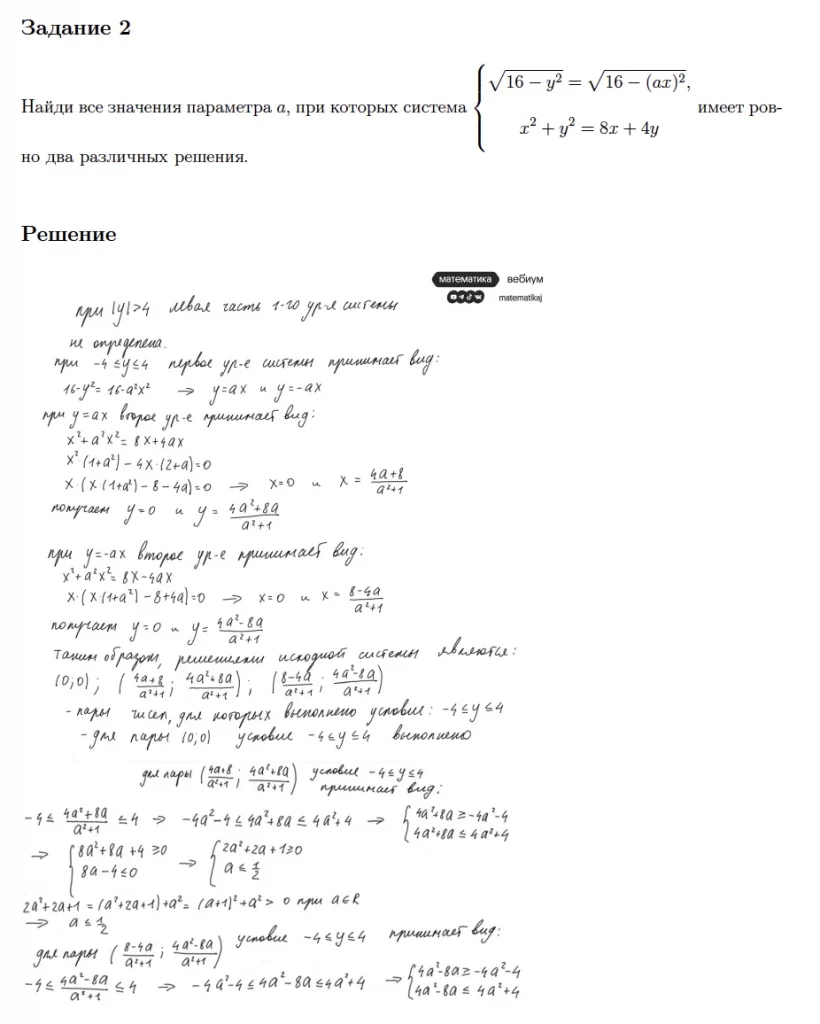 Задание 2
Найди все значения параметра a, при которых система { √(16 − y²) = √(16 − (ax)²), x² + y² = 8x + 4y имеет ров-
но два различных решения.
Решение
математика вебиум
matematikaj
при |y|>4 левая часть 1-го ур-я системы
не определена.
при -4 ≤ y ≤ 4 первое ур-е системы принимает вид:
16-y² = 16-a²x² → y=ax и y=-ax
при y=ax второе ур-е принимает вид:
x²+a²x²=8x+4ax
x²·(1+a²)-4x·(2+a)=0
x·(x·(1+a²)-8-4a)=0 → x=0 и x = (4a+8)/(a²+1)
получаем y=0 и y = (4a²+8a)/(a²+1)
при y=-ax второе ур-е принимает вид:
x²+a²x²=8x-4ax
x·(x·(1+a²)-8+4a)=0 → x=0 и x = (8-4a)/(a²+1)
получаем y=0 и y = (4a²-8a)/(a²+1)
Таким образом, решениями исходной системы являются:
(0;0); ((4a+8)/(a²+1); (4a²+8a)/(a²+1)); ((8-4a)/(a²+1); (4a²-8a)/(a²+1))
- пары чисел, для которых выполнено условие: -4 ≤ y ≤ 4
- для пары (0;0) условие -4 ≤ y ≤ 4 выполнено
для пары ((4a+8)/(a²+1); (4a²+8a)/(a²+1)) условие -4 ≤ y ≤ 4
принимает вид:
-4 ≤ (4a²+8a)/(a²+1) ≤ 4 → -4a²-4 ≤ 4a²+8a ≤ 4a²+4 → { 4a²+8a ≥ -4a²-4 4a²+8a ≤ 4a²+4
→ { 8a²+8a+4 ≥ 0 8a-4 ≤ 0 → { 2a²+2a+1 ≥ 0 a ≤ 1/2
2a²+2a+1 = (a²+2a+1)+a² = (a+1)²+a² > 0 при a∈R
→ a ≤ 1/2
для пары ((8-4a)/(a²+1); (4a²-8a)/(a²+1)) условие -4 ≤ y ≤ 4 принимает вид:
-4 ≤ (4a²-8a)/(a²+1) ≤ 4 → -4a²-4 ≤ 4a²-8a ≤ 4a²+4 → { 4a²-8a ≥ -4a²-4 4a²-8a ≤ 4a²+4